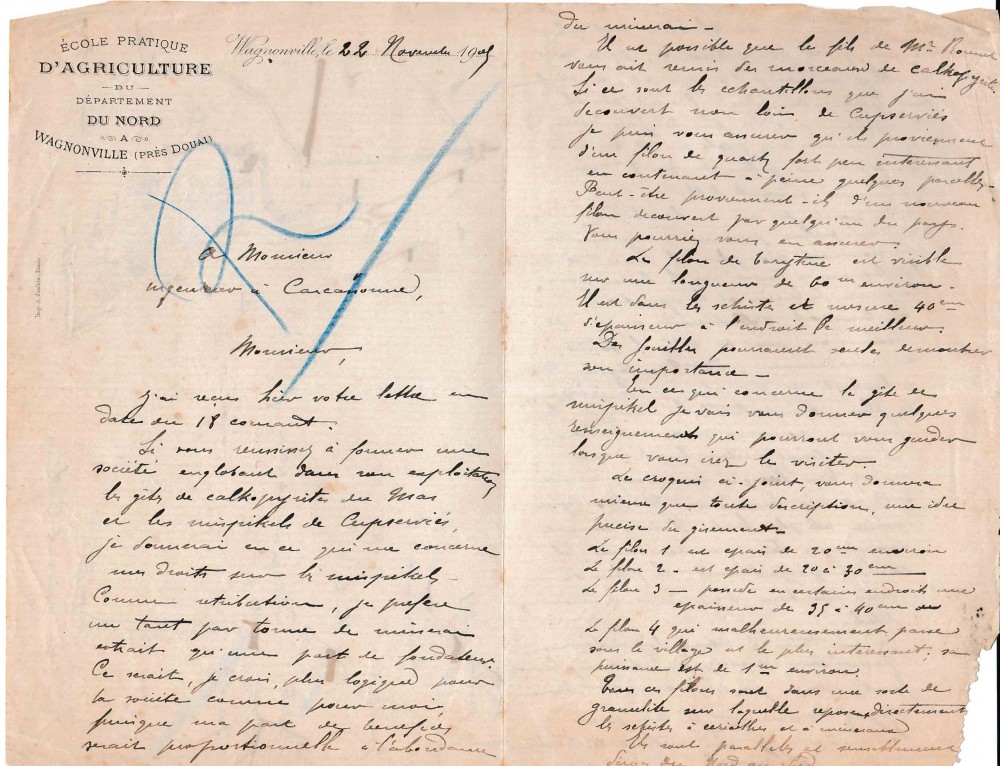 ÉCOLE PRATIQUE
D'AGRICULTURE
DU
DÉPARTEMENT
DU NORD
A
WAGNONVILLE (PRÈS DOUAI)
Wagnonville, le 22 Novembre 1905
A Monsieur
ingenieur à Carcassonne,
Monsieur,
j'ai reçu hier votre lettre en
date du 18 courant.
Si vous reussissez à former une
société englobant dans son exploitation
les gîtes de calkopyrites du Mas
et les mispikels de Cupserviés,
je donnerai en ce qui me concerne
mes droits sur les mispikels.
Comme retribution, je prefere
un tant par tonne de minerai
extrait qu'une part de fondateur.
Ce serait, je crois, plus logique pour
la societé comme pour moi,
puisque ma part de benefices
serait proportionnelle à l'abondance
du minerai —
Il est possible que le fils de Mr
vous ait remis des morceaux de calkopyrite.
Si ce sont les echantillons que j'ai
decouvert non loin de Cupserviés
je puis vous assurer qu'ils proviennent
d'un filon de quartz fort peu intéressant
en contenant à peine quelques parcelles.
Peut-être proviennent-ils d'un nouveau
filon decouvert par quelqu'un du pays.
Vous pourriez vous en assurer.
Le filon de barytine est visible
sur une longueur de 60m environ.
Il est dans les schistes et mesure 40cm
d'epaisseur à l'endroit le meilleur.
Des fouilles pourraient seules demontrer
son importance —
En ce qui concerne le gîte de
mispikel je vais vous donner quelques
renseignements qui pourront vous guider
lorsque vous irez le visiter.
Le croquis ci-joint, vous donnera
mieux que toute description, une idée
precise du gisement
Le filon 1 est epais de 20cm environ
Le filon 2 - est epais de 20 à 30cm
Le filon 3 — possede en certains endroits une
epaisseur de 35 à 40cm
Le filon 4 qui malheureusement passe
sous le village est le plus intéressant; sa
puissance est de 1m environ.
Tous ces filons sont dans une sorte de
granulite sur laquelle reposent directement
les schistes à et à
Ils sont parallèles et sensiblement
du Nord au